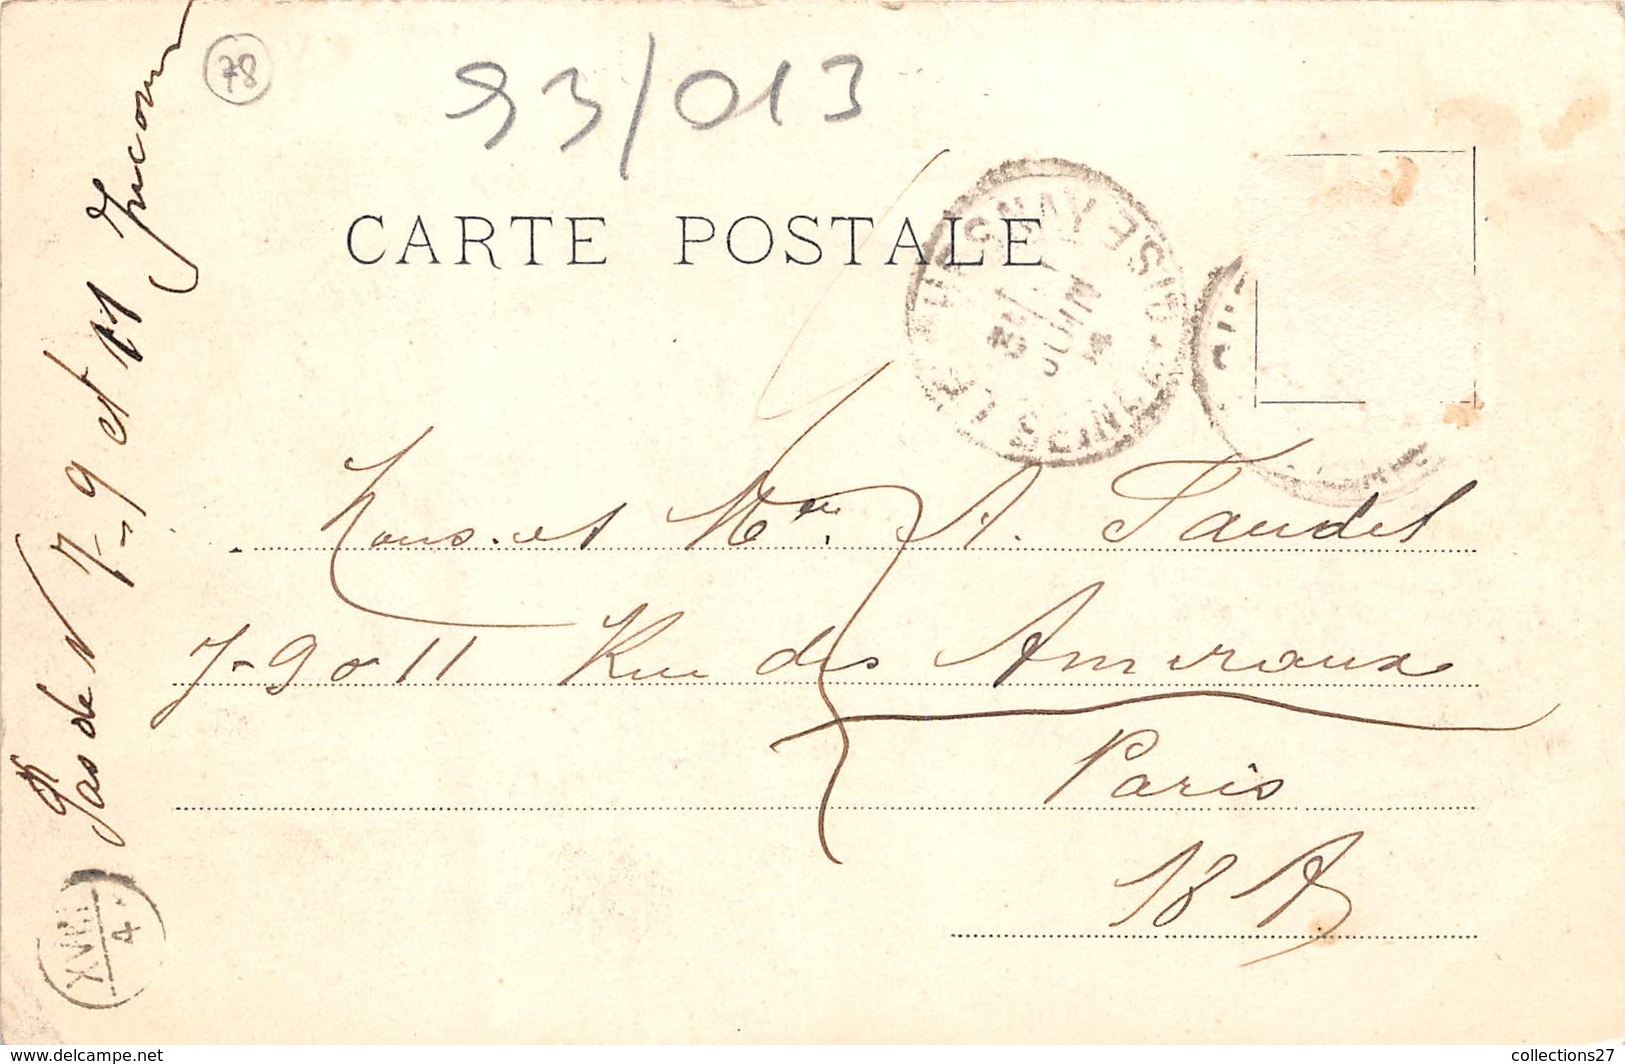 78
93/013
CARTE POSTALE
JUIN
SEINE
Mons. et Me. A. Taudel
7-9 o 11 Rue des Amiraux
Paris
18 A
Pas de N 7-9 et 11 Inconnu
4
www.delcampe.net
collections27